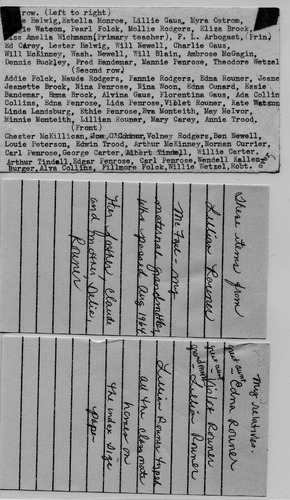 row. (left to right)
Helwig, Estella Monroe, Lillie Gaus, Myra Ostrom,
Watson, Pearl Folck, Mollie Rodgers, Elize Brook,
Miss Amelia Wichmann(Primary teacher), F. L. Arbogast, (Prin)
Ed Carey, Lester Helwig, Will Newell, Charlie Gaus,
Will McKinney, Wash. Newell, Will Blain, Ambrose McGagin,
Dennis Buckley, Fred Bandemar, Mannie Penrose, Theodore Wetzel
(Second row)
Addie Folck, Maude Rodgers, Fannie Rodgers, Edna Rouner, Jesne
Jeanette Brook, Nina Penrose, Nina Woon, Edna Cunard, Essie
Bandemar, Erma Brook, Alvina Gaus, Florentina Gaus, Ada Collin
Collins, Edna Penrose, Lida Penrose, Violet Rouner, Kate Watson
Linda Landsburg, Ethie Penrose, Eva Monteith, May McIvor,
Minnie Monteith, Lillian Rouner, Mary Carey, Annie Trood,
(Front)
Chester McKillican, Joe O'Connor, Volney Rodgers, Ben Newell,
Louie Peterson, Edwin Trood, Arthur McKinney, Norman Currier,
Carl Penrose, George Carter, Albert Tindell, Willie Carter,
Arthur Tindell, Edgar Penrose, Carl Penrose, Wendell Kallen
Burger, Alva Collins, Fillmore Folck, Willie Wetzel, Robt.
These items from
Lillian Rouner
McFaul - my
maternal grandmother
who passed Aug 1969
Her father, Claude
and mother Delie,
Rouner
My relatives -
great aunt - Edna Rouner
great aunt - Violet Rouner
grandmother - Lillian Rouner
Lillian Rouner typed
all the classmate
names on
the index size
paper